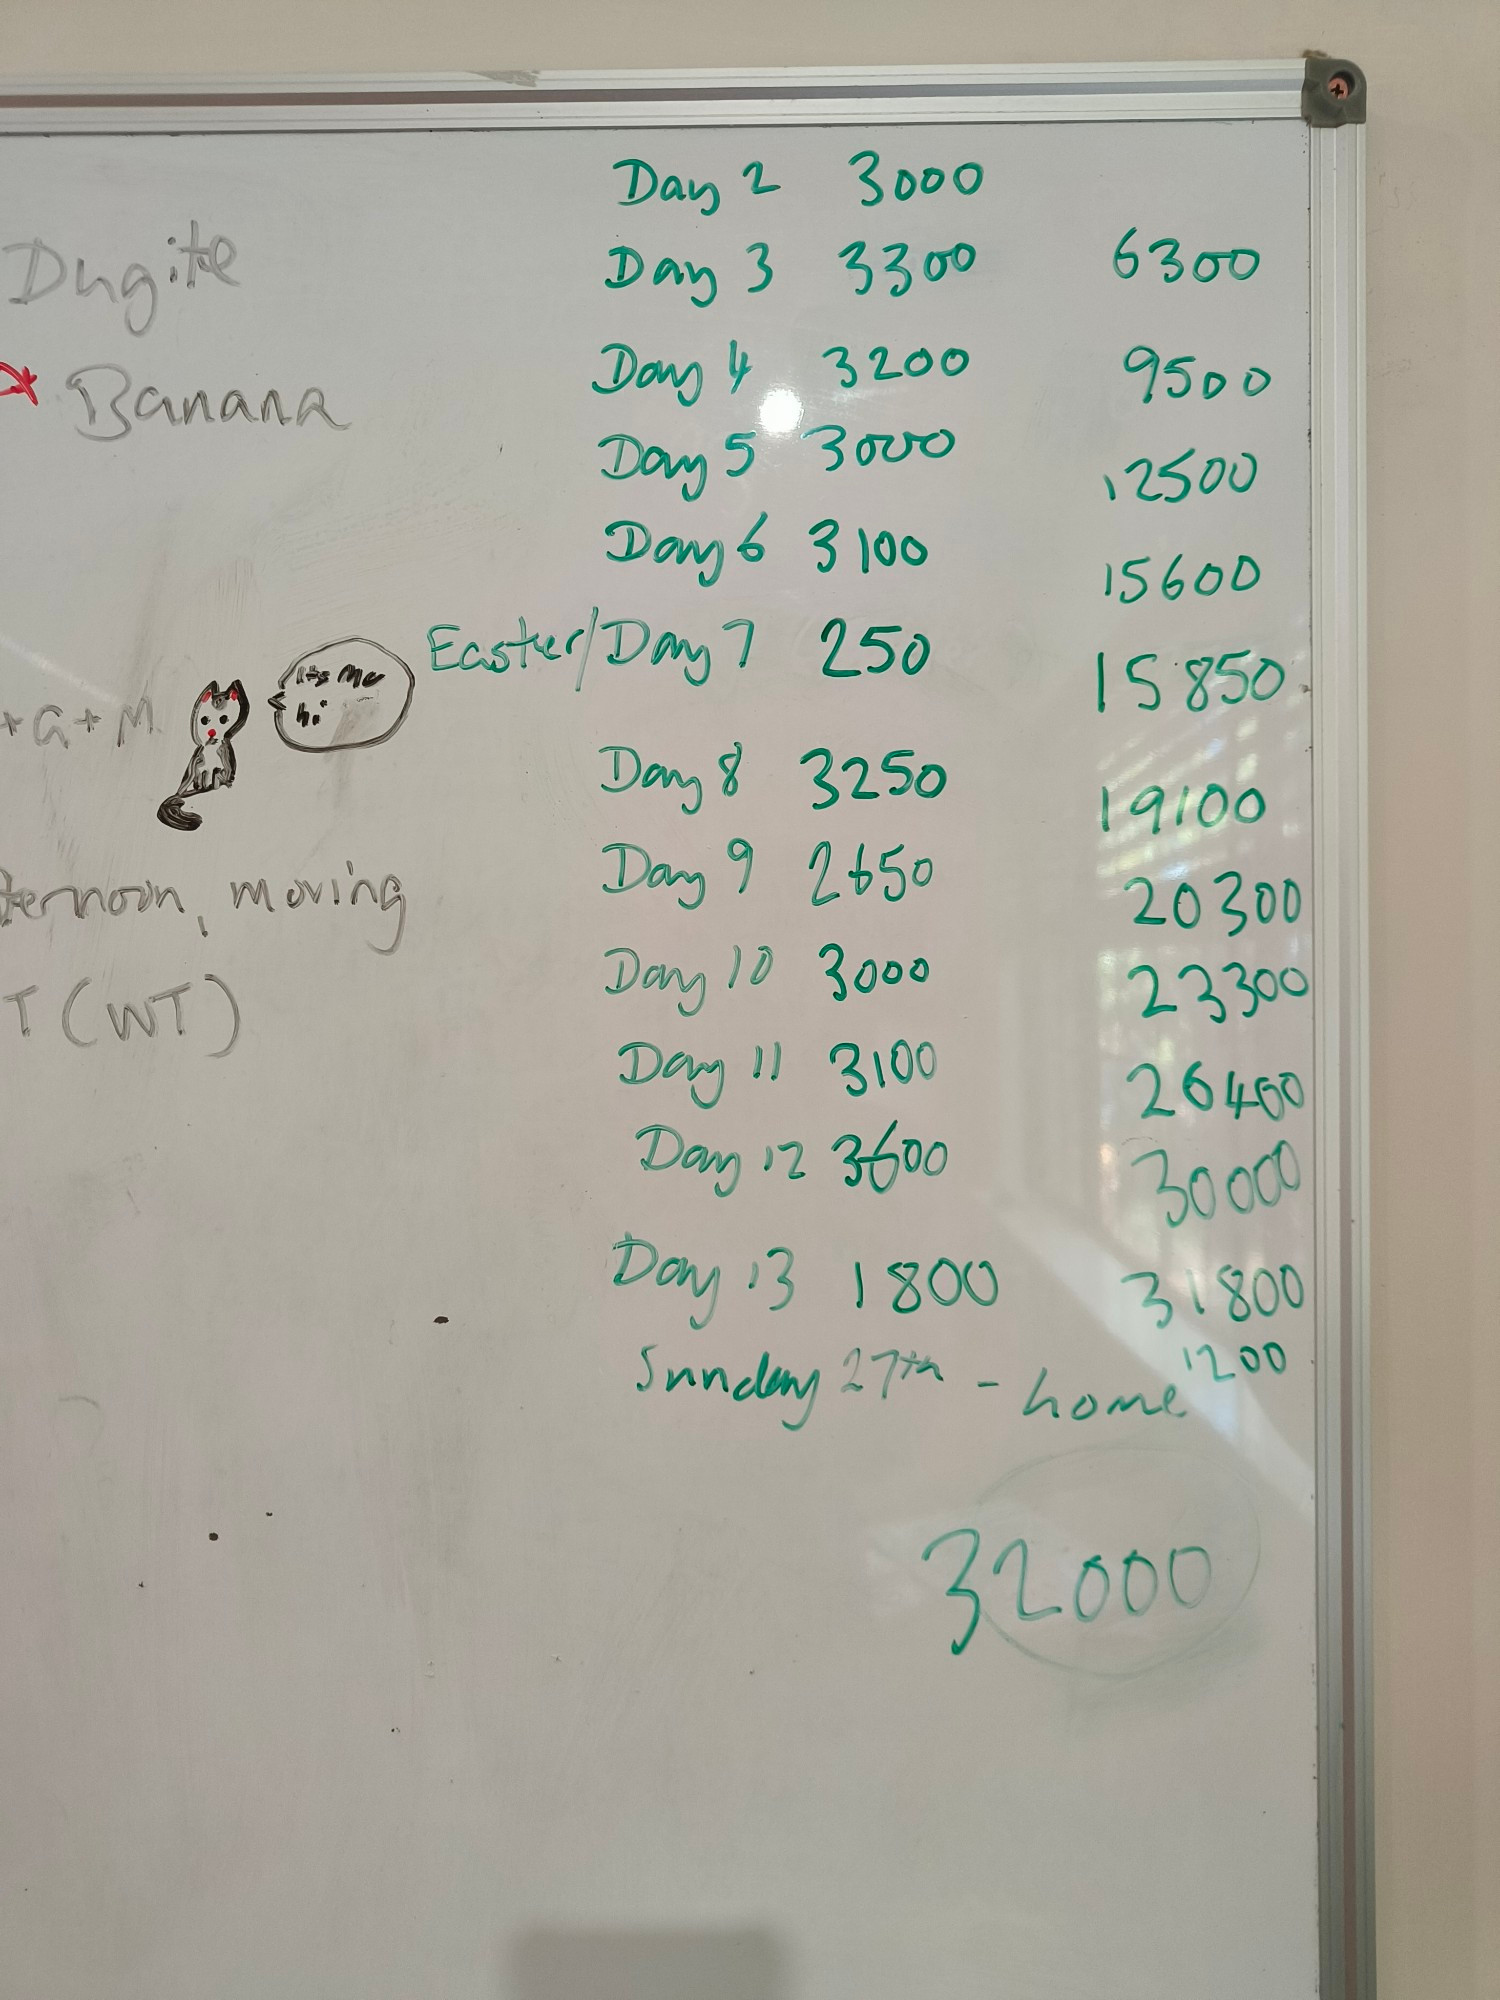 Day 2 3000
Dugite
Day 3 3300 6300
Banana
Day 4 3200 9500
Day 5 3000 12500
Day 6 3100 15600
Easter/Day 7 250 15850
+G+M
It's me
hi
Day 8 3250 19100
Day 9 2650 20300
ternoon, moving
Day 10 3000 23300
T (WT)
Day 11 3100 26400
Day 12 3600 30000
Day 13 1800 31800
Sunday 27th - home 1200
32000